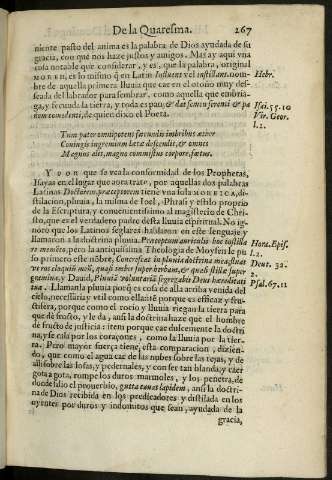 De la Quaresma. 267
niente pasto del anima es la palabra de Dios ayudada de su
gracia, con que nos haze justos y amigos. Mas ay aqui vna
cosa notable que considerar, y es, que la palabra, original
es lo mismo q̃ en Latin
bre de aquella primera lluuia que cae en el otoño muy des-
seada de labrador para sembrar, como aquella que embria-
ga, y fecunda la tierra, y toda es pan, & dat semen serenti & pa
nem comedenti, de quien dixo el Poeta.
Hebr.
Isai. 55. 10
Vir. Geor.
l. 2.
Tum pater omnipotens fœcundis imbribus æther
Coniugis ingremium lætæ descendit, & omnes
Magnus alit, magno commistus corpore, fœtus.
Y DON que se vea la conformidad de los Prophetas,
Isayas en el lugar que aora traxo, por aquellas dos palabras
Latinas Doctorem, præceptorem tiene vna sola
stilacion, pluuia, la misma de Ioel, Phrasi y estilo proprio
de la Escriptura, y conuenientissimo al magisterio de Chri-
sto, que es el verdadero padre desta lluuia espiritual. No ig-
noro que los Latinos seglares hablaron en este lenguaje y
llamaron a la doctrina pluuia. Præceptum auriculis hoc instilla
re memento, pero la antiquissima Theologia de Moysen le pu
so primero este nõbre, Concrescat in pluuia doctrina mea, fluat
vt ros eloquiũ meũ, quasi imber super herbam, & quasi stillæ super
gramina, y Dauid, Pluuiã voluntariã segregabis Deus hæreditati
tuæ. Llamanla pluuia porq̃ es cosa de alla arriba venida del
cielo, necessaria y vtil como ella: itẽ porque es efficaz y fru-
ctifera, porque como el rocio y lluuia riegan la tierra para
que dè fruto, y le da, ansi la doctrina haze que el hombre
de fructo de justicia: iten porque cae dulcemente la doctri
na, y se cala por los coraçones, como la lluuia por la tier-
ra. Pero mayor fuerça tiene, esta comparacion, dizien-
do, que como el agua cae de las nubes sobre las tejas, y de
alli sobre las losas, y pedernales, y con ser tan blanda, y caer
gota a gota, rompe los duros marmoles, y los penetra, de
donde salio el prouerbio, gutta cauat lapidem, ansi la doctri-
na de Dios recibida en los predicadores y distilada en los
oyentes por duros y indomitos que sean, ayudada de la
Hora. Epis.
l. 2.
Deut. 32.
2.
Psal. 67. 11
gracia,